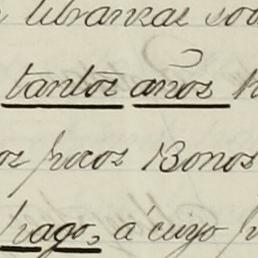 libranzas
tantos años
pocos Bonos
pago, á cuyo